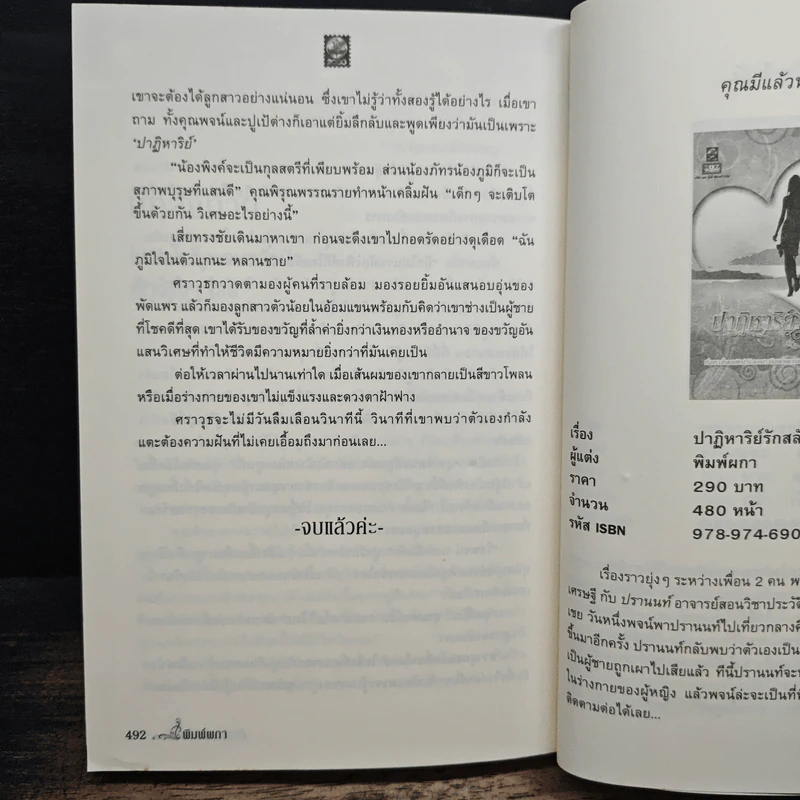 เขาจะต้องได้ลูกสาวอย่างแน่นอน ซึ่งเขาไม่รู้ว่าทั้งสองรู้ได้อย่างไร เมื่อเขา
ถาม ทั้งคุณพจน์และปูเป้ต่างก็เอาแต่ยิ้มลึกลับและพูดเพียงว่ามันเป็นเพราะ
‘ปาฏิหาริย์’
“น้องพิงค์จะเป็นกุลสตรีที่เพียบพร้อม ส่วนน้องภัทรน้องภูมิก็จะเป็น
สุภาพบุรุษที่แสนดี” คุณพิรุณพรรณรายทำหน้าเคลิ้มฝัน “เด็กๆ จะเติบโต
ขึ้นด้วยกัน วิเศษอะไรอย่างนี้”
เสี่ยทรงชัยเดินมาหาเขา ก่อนจะดึงเขาไปกอดรัดอย่างดุเดือด “ฉัน
ภูมิใจในตัวแกนะ หลานชาย”
ศราวุธกวาดตามองผู้คนที่รายล้อม มองรอยยิ้มอันแสนอบอุ่นของ
พัดแพร แล้วก็มองลูกสาวตัวน้อยในอ้อมแขนพร้อมกับคิดว่าเขาช่างเป็นผู้ชาย
ที่โชคดีที่สุด เขาได้รับของขวัญที่ล้ำค่ายิ่งกว่าเงินทองหรืออำนาจ ของขวัญอัน
แสนวิเศษที่ทำให้ชีวิตมีความหมายยิ่งกว่าที่มันเคยเป็น
ต่อให้เวลาผ่านไปนานเท่าใด เมื่อเส้นผมของเขากลายเป็นสีขาวโพลน
หรือเมื่อร่างกายของเขาไม่แข็งแรงและดวงตาฝ้าฟาง
ศราวุธจะไม่มีวันลืมเลือนวินาทีนี้ วินาทีที่เขาพบว่าตัวเองกำลัง
แตะต้องความฝันที่ไม่เคยเอื้อมถึงมาก่อนเลย...
-จบแล้วค่ะ-
492 พิมพ์ผกา
คุณมีแล้ว
ปาฏิหาริย์
เรื่อง ปาฏิหาริย์รัก
ผู้แต่ง พิมพ์ผกา
ราคา 290 บาท
จำนวน 480 หน้า
รหัส ISBN 978-974-690
เรื่องราวยุ่งๆ ระหว่างเพื่อน 2 คน
เศรษฐี กับ ปรานนท์ อาจารย์สอนวิชา
เชย วันหนึ่งพจน์พาปรานนท์ไปเที่ยวกลาง
ขึ้นมาอีกครั้ง ปรานนท์กลับพบว่าตัวเองเป็น
เป็นผู้ชายถูกเผาไปเสียแล้ว ทีนี้ปรานนท์จะ
ในร่างกายของผู้หญิง แล้วพจน์ล่ะจะเป็นที่
ติดตามต่อได้เลย...